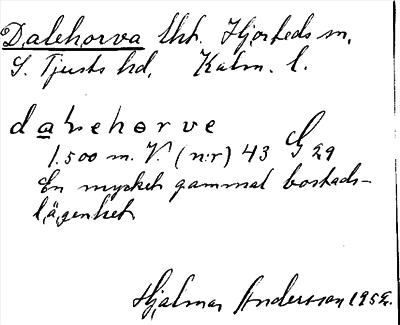 Dalehorva lht. Hjorteds sn,
S. Tjusts hd, Kalm. l.
dalehorve
1.500 m. V. (n:r) 43 G 29
En mycket gammal bostads-
lägenhet
Hjalmar Andersson 1952.